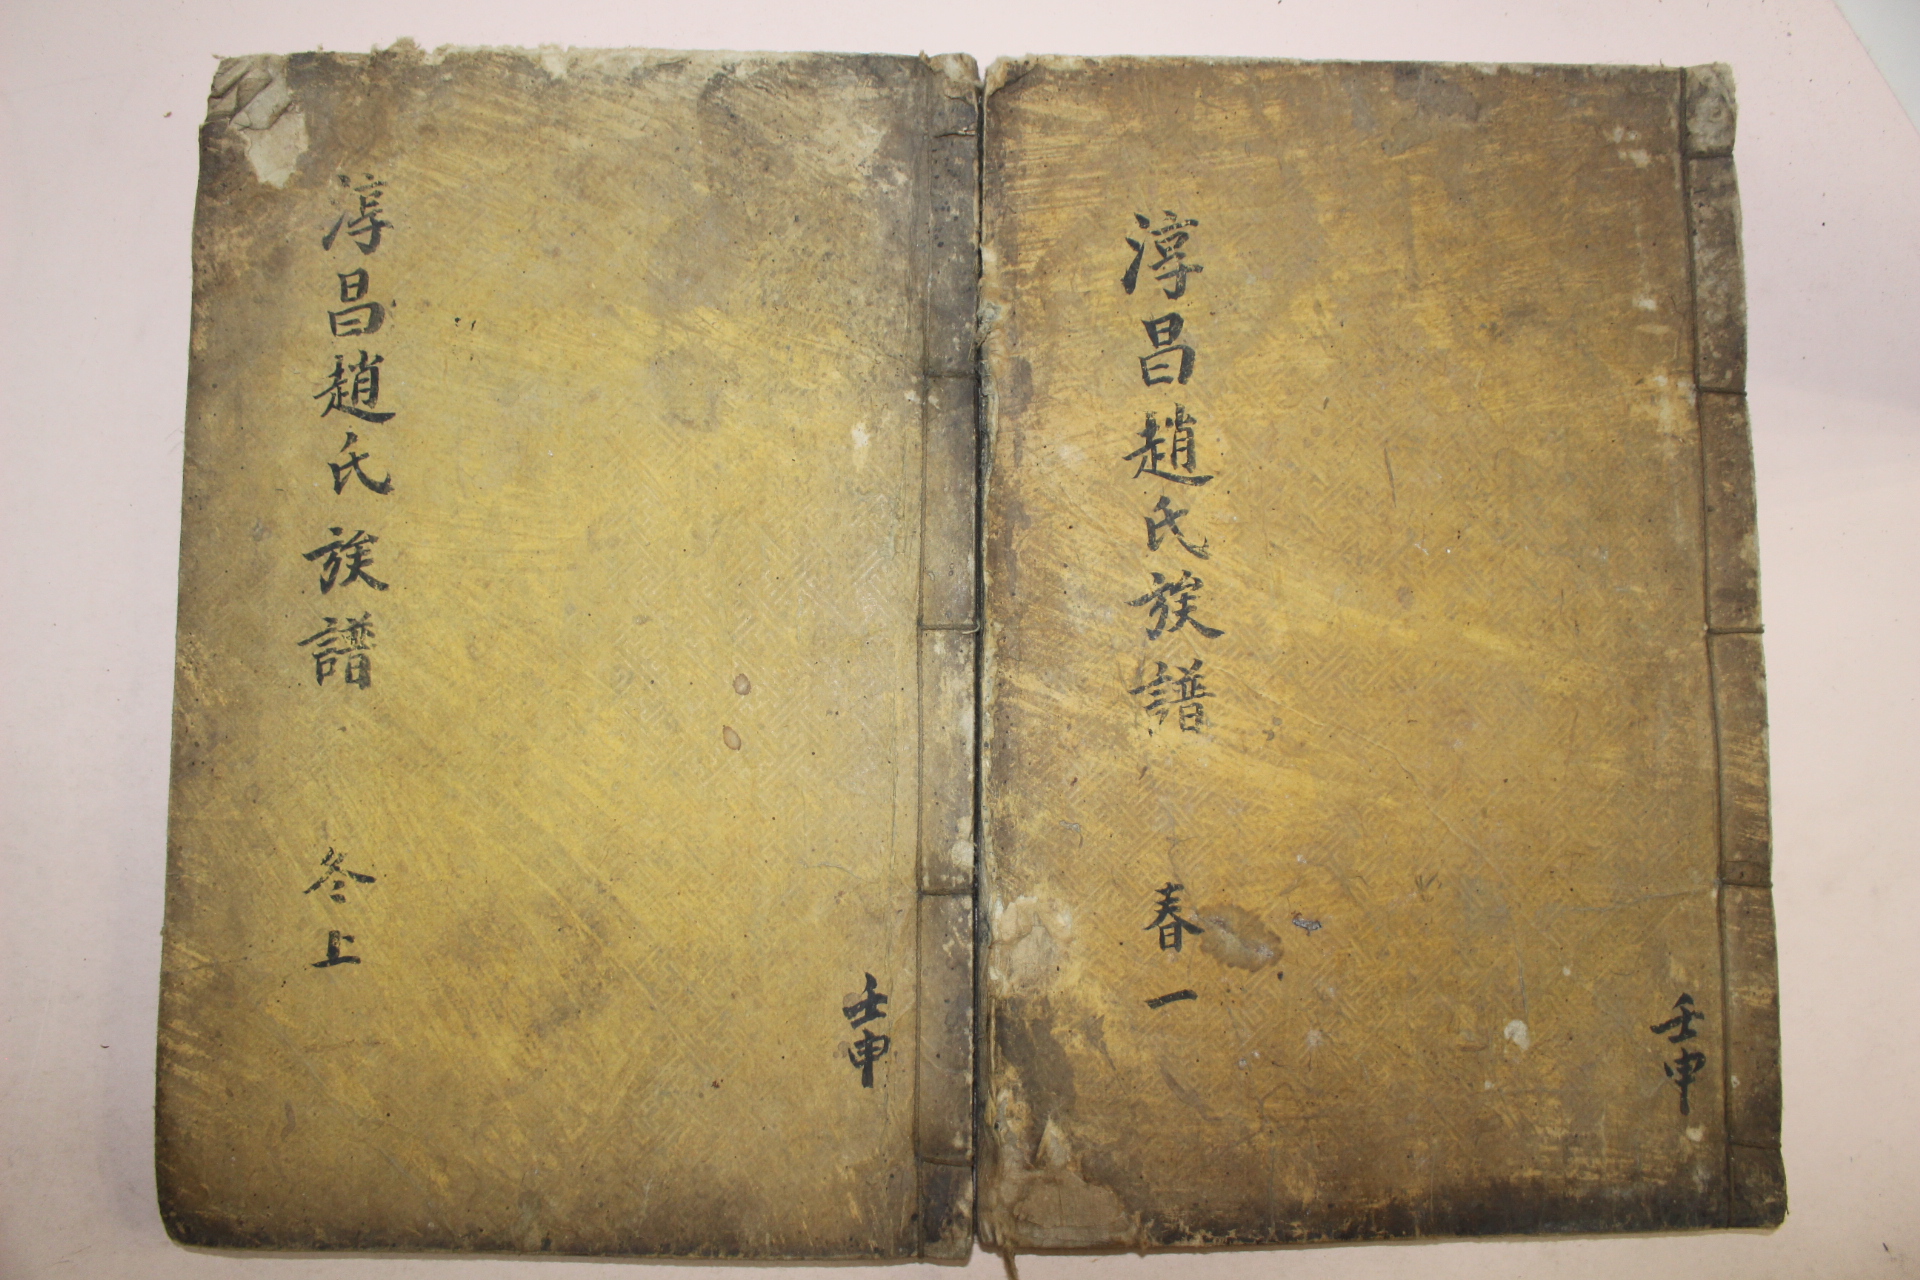 淳昌趙氏族譜 春一
壬申
淳昌趙氏族譜 冬上
壬申